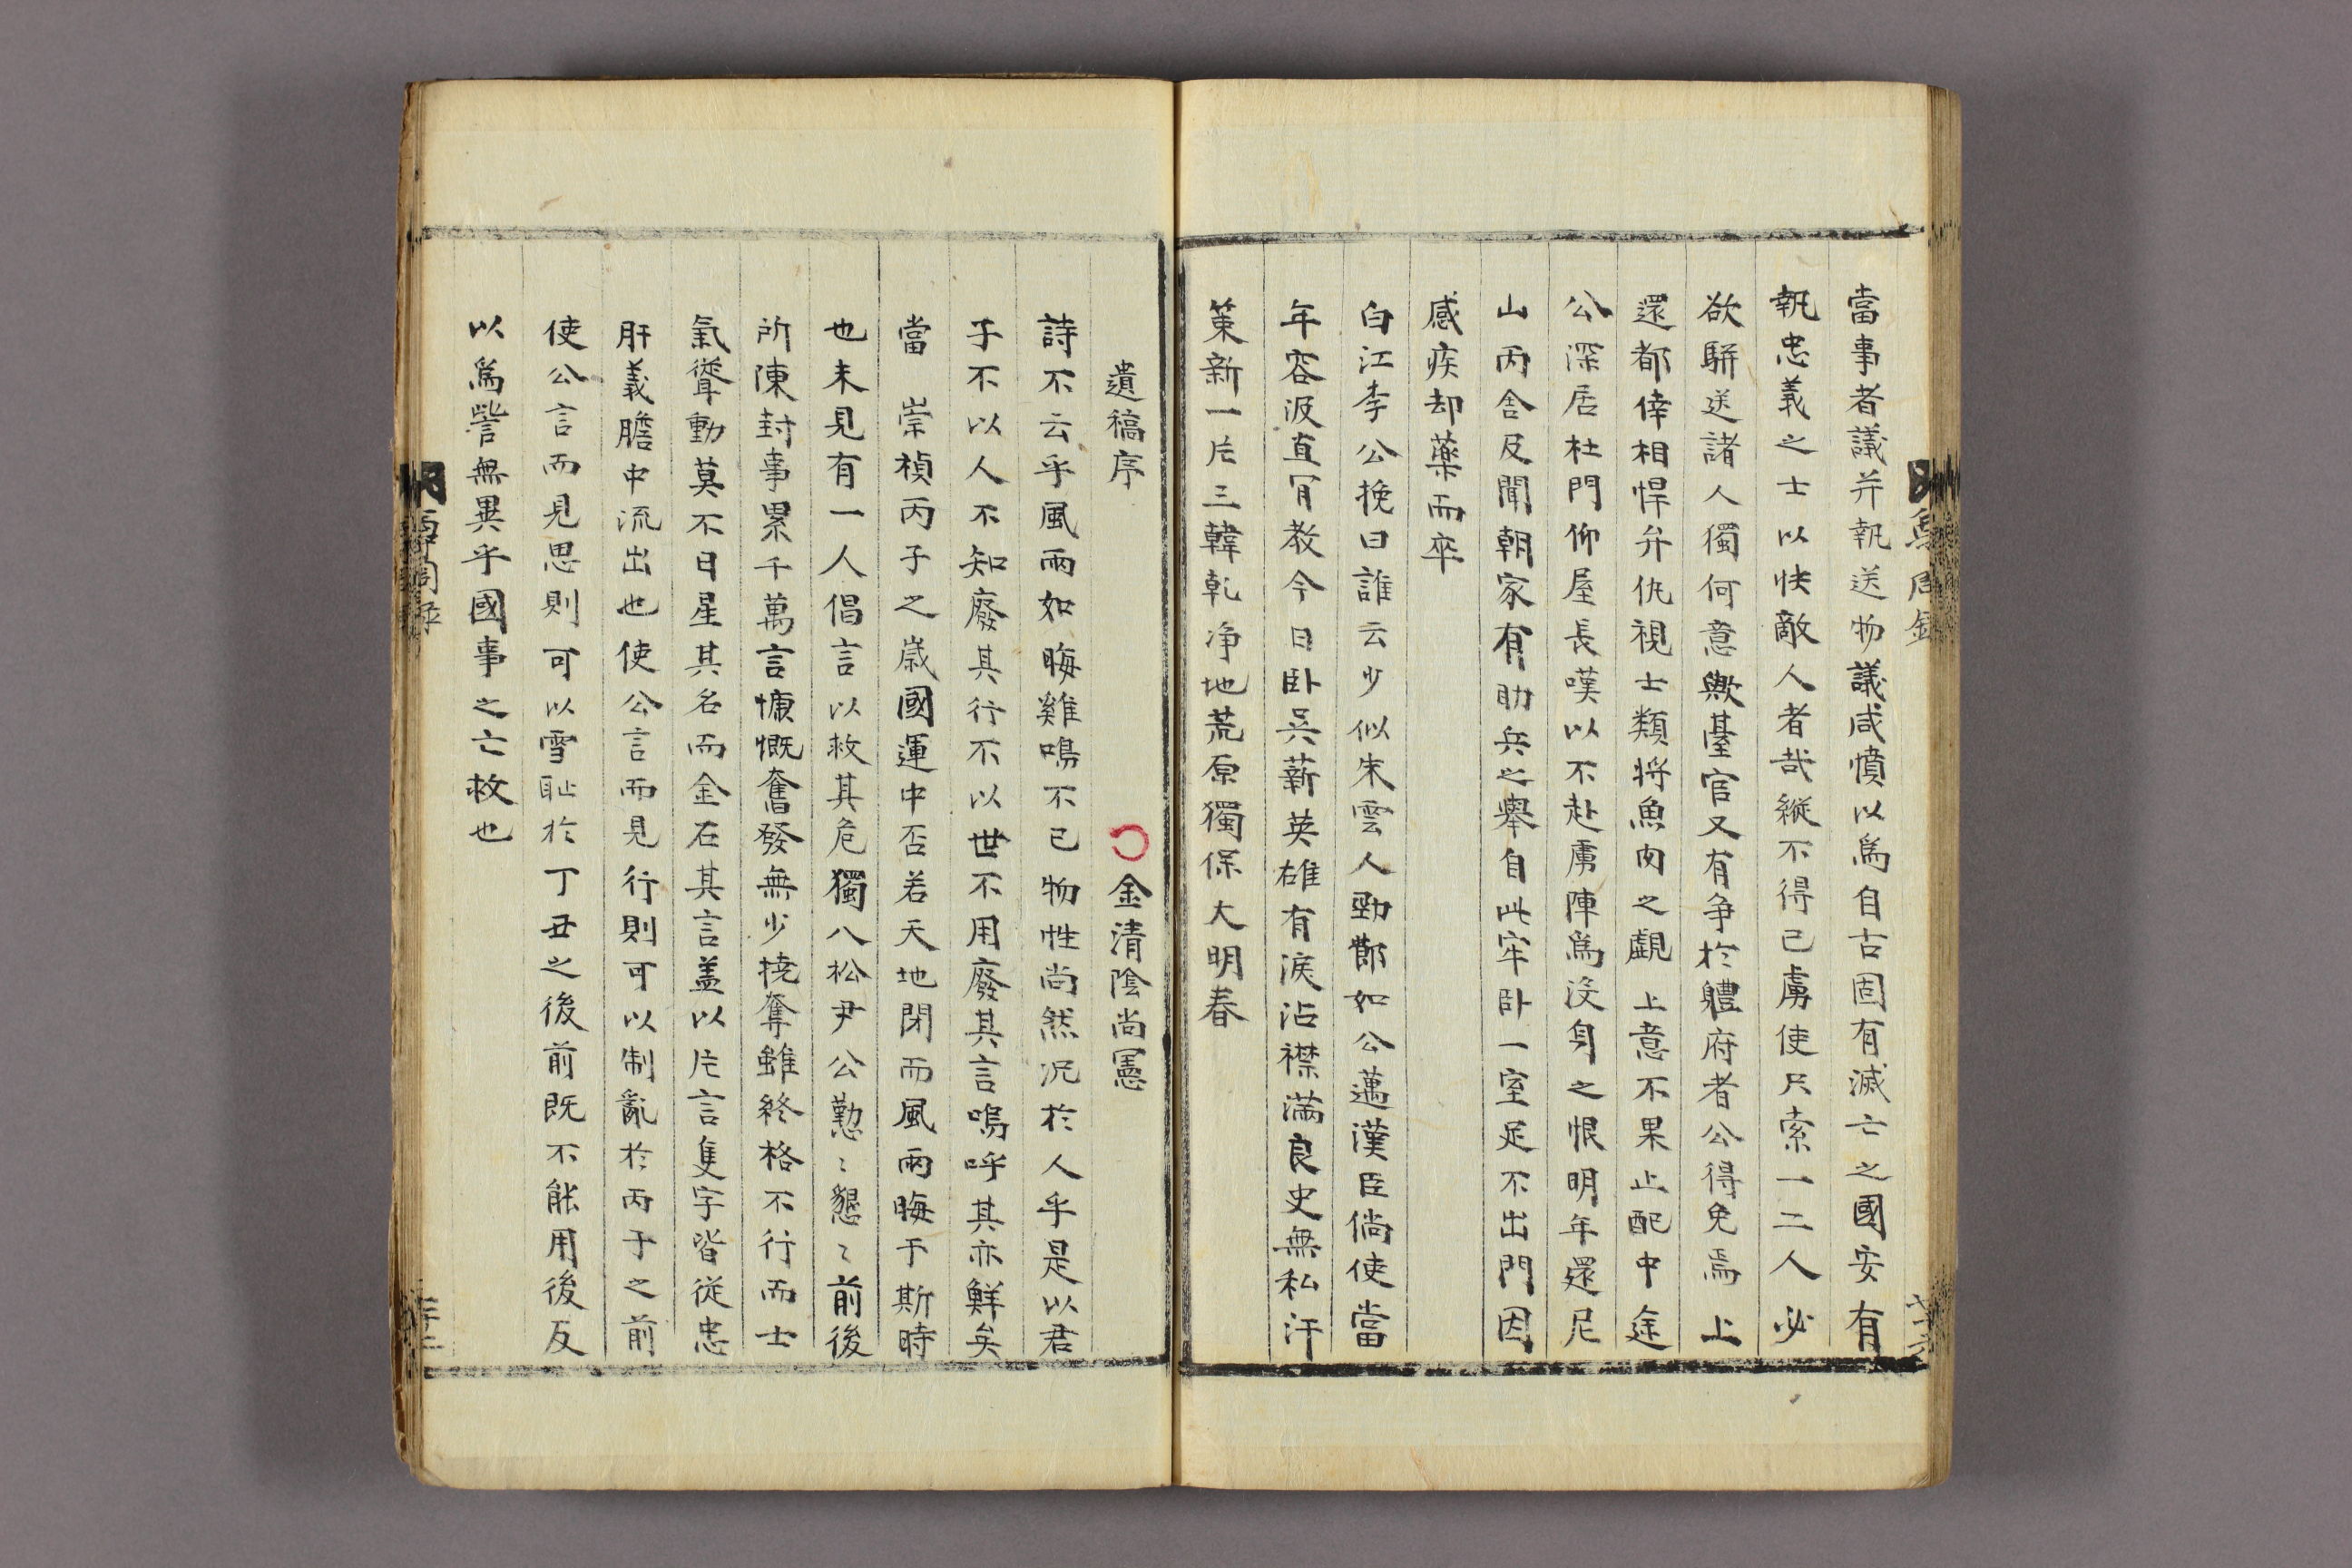 當事者議幷執送物議咸憤以爲自古固有滅亡之國安有
執忠義之士以快敵人者哉縱不得已虜使只索一二人必
欲騈送諸人獨何意歟臺官又有争於體府者公得免焉 上
還都倖相悍弁仇視士類將魚肉之覰 上意不果止配中途
公深居杜門仰屋長嘆以不赴虜陣爲沒身之恨明年還尼
山丙舍及聞朝家有助兵之舉自此牢卧一室足不出門因
感疾却藥而卒
白江李公挽曰誰云少似朱雲人勁節如公邁漢臣倘使當
年容汲直肎教今日卧吳薪英雄有淚沾襟滿良史無私汗
策新一片三韓乾净地荒原獨保大明春
遺稿序 金清陰尚憲
詩不云乎風雨如晦雞鳴不已物性尚然况於人乎是以君
子不以人不知廢其行不以世不用廢其言嗚呼其亦鮮矣
當 崇禎丙子之歲國運中否若天地閉而風雨晦于斯時
也未見有一人倡言以救其危獨八松尹公懃〻懇〻前後
所陳封事累千萬言慷慨奮發無少撓奪雖終格不行而士
氣聳動莫不日星其名而金石其言盖以片言隻字皆從忠
肝義膽中流出也使公言而見行則可以制亂於丙子之前
使公言而見思則可以雪耻於丁丑之後前既不能用後反
以爲訾無異乎國事之亡救也